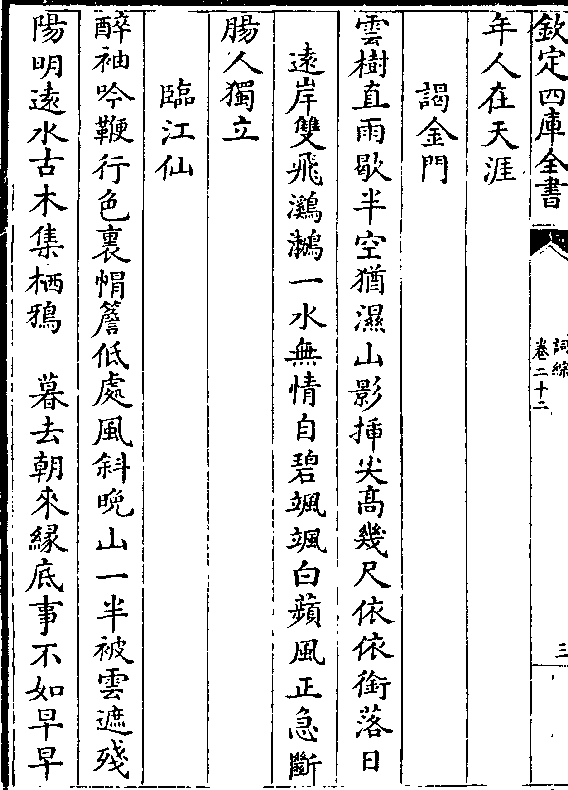 欽定四庫全書
詞綜
卷二十二
三
年人在天涯
謁金門
雲樹直雨歇半空猶濕山影挿尖高幾尺依依銜落日
遠岸雙飛鸂鶒一水無情自碧颯颯白蘋風正急斷
腸人獨立
臨江仙
醉袖吟鞭行色裏㡌簷低處風斜晩山一半被雲遮殘
陽明遠水古木集栖鴉　暮去朝來縁底事不如早早